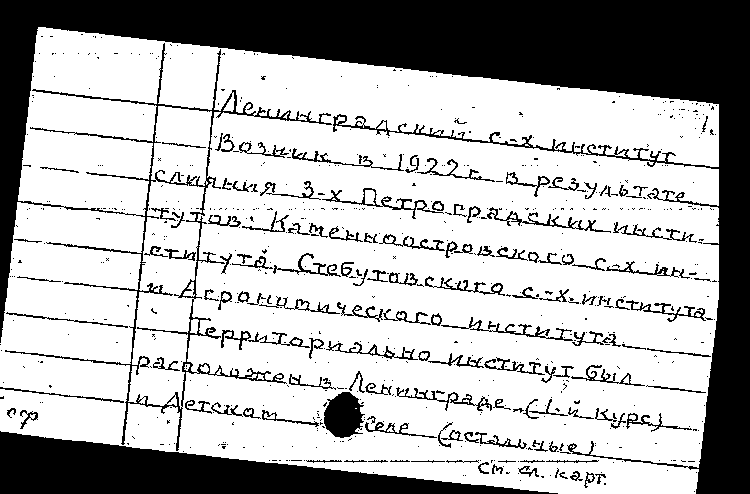 1.
Ленинградский с.-х. институт
Возник в 1922 г. в результате
слияния 3-х Петроградских инсти-
тутов: Каменноостровского с.-х. ин-
ститута, Стебутовского с.-х. института
и Агрономического института.
Территориально институт был
расположен в Ленинграде (1-й курс)
и Детском Селе (остальные)
см. сл. карт.